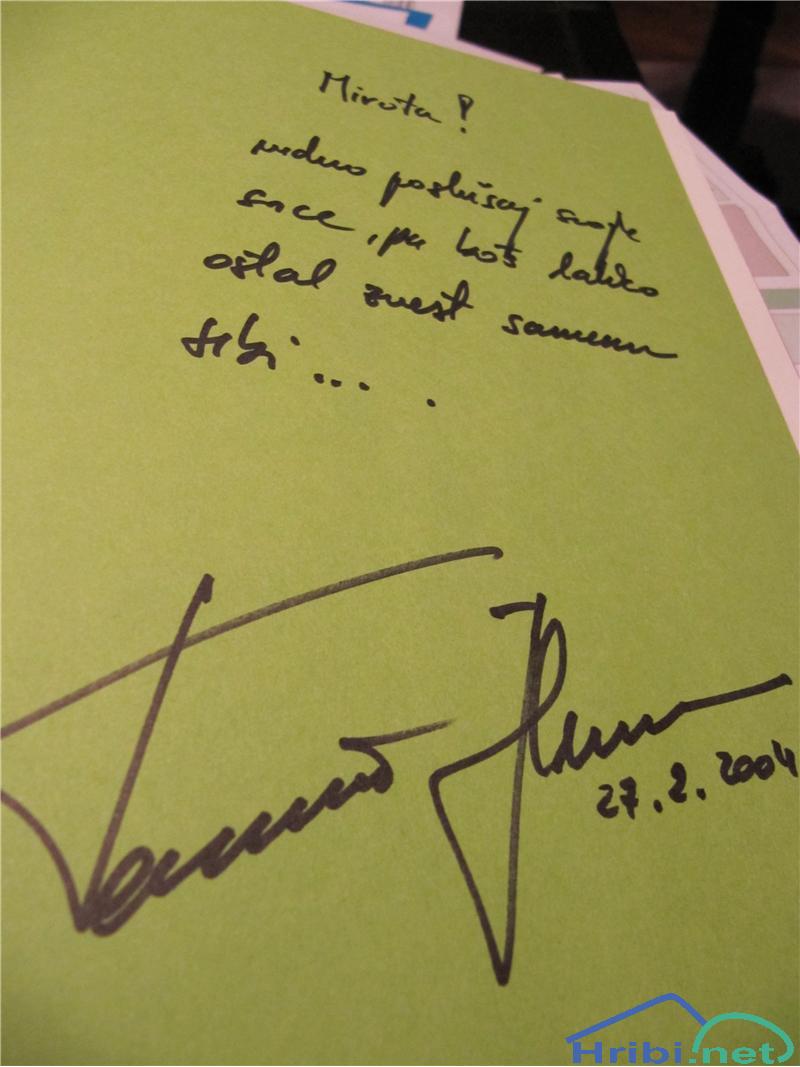 Mirota!
vedno poslušaj svoje
srce, pa boš lahko
ostal zvest samemu
sebi... .
27.2.2004
Hribi.net